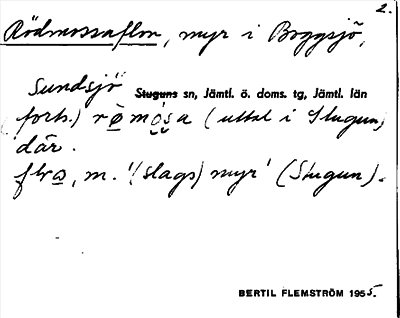 2.
Rödmossaflon, myr i Boggsjö,
Sundsjö Stuguns sn, Jämtl. ö. doms. tg, Jämtl. län
(forts.) römosa (uttal i Stugun)
där.
flo̱a, m. '(slags) myr' (Stugun).
BERTIL FLEMSTRÖM 1955.